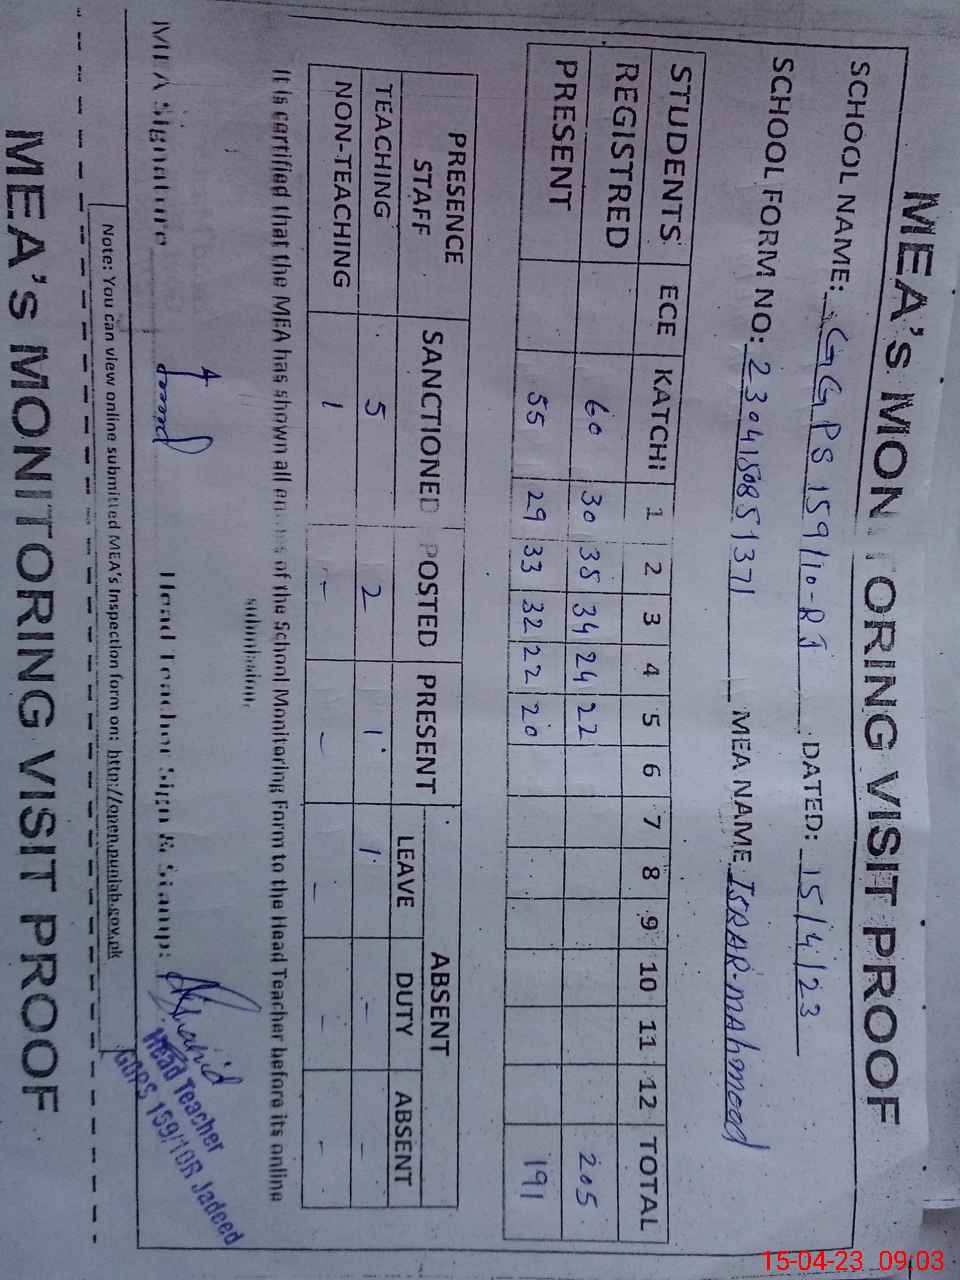 MEA's MONITORING VISIT PROOF
SCHOOL NAME: GGPS 159/10-R J DATED: 15/4/23
SCHOOL FORM NO: 230415085131371 MEA NAME ISRAR-MAHMOOD
STUDENTS ECE KATCHI 1 2 3 4 5 6 7 8 9 10 11 12 TOTAL
REGISTRED 60 30 35 34 24 22 205
PRESENT 55 29 33 32 22 20 191
PRESENCE STAFF SANCTIONED POSTED PRESENT ABSENT
LEAVE DUTY ABSENT
TEACHING 5 2 1 1 - -
NON-TEACHING 1 - - - - -
It is certified that the MEA has shown all of the School Monitoring Form to the Head Teacher before its online
submission.
MEA Signature Head Teacher Sign & Stamp:
Head Teacher
GGPS 159/10R Jadeed
Note: You can view online submitted MEA's Inspection form on: http://open.punjab.gov.pk
MEA's MONITORING VISIT PROOF
15-04-23 09:03